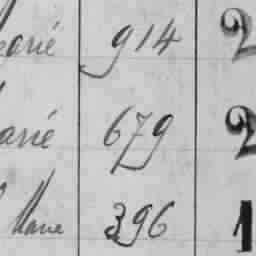 arié 914 2
arié 679 2
Marie 396 1